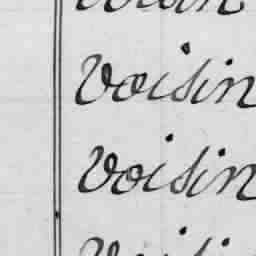 Voisin
Voisin